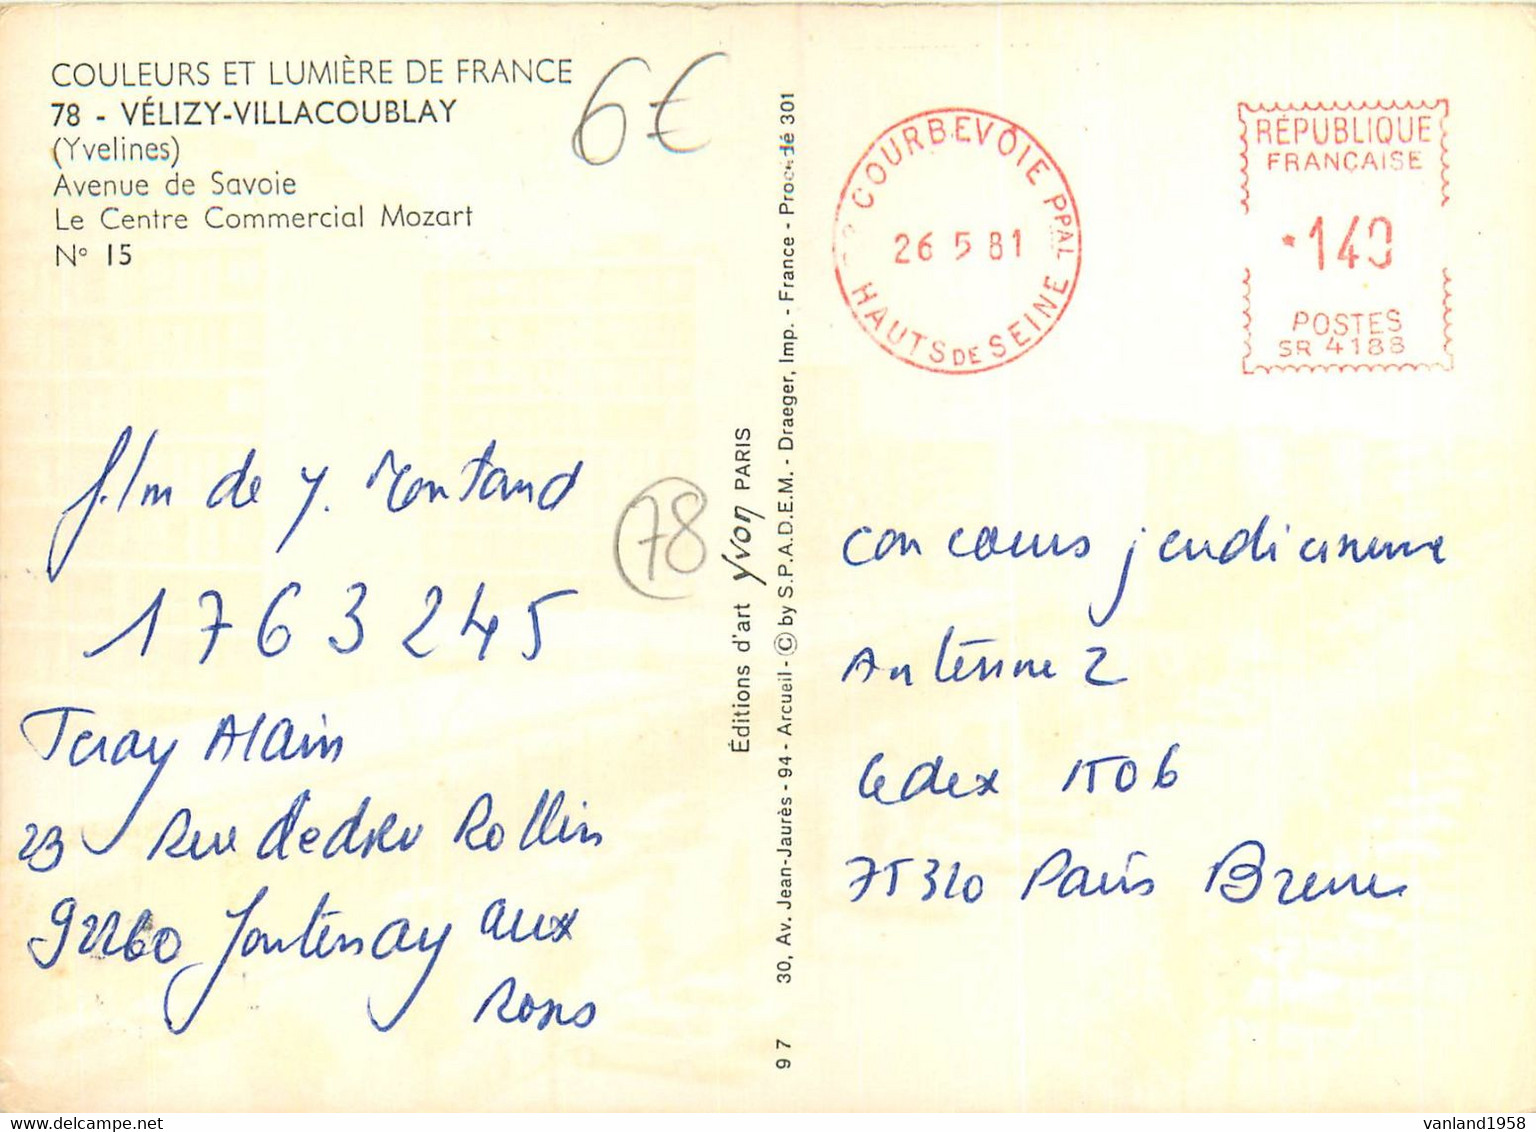 COULEURS ET LUMIÈRE DE FRANCE
78 - VÉLIZY-VILLACOUBLAY
(Yvelines)
Avenue de Savoie
Le Centre Commercial Mozart
N° 15
6€
film de Y. Montand
1763245
Teray Alain
23 Rue Ledru Rollin
92260 Fontenay aux
Roses
78
Éditions d'art Yvon PARIS
30, Av. Jean-Jaurès - 94 - Arcueil - © by S.P.A.D.E.M. - Draeger, Imp. - France - Procédé 301
9 7
COURBEVOIE PPAL
26 5 81
HAUTS DE SEINE
RÉPUBLIQUE
FRANÇAISE
*140
POSTES
SR 4188
concours jeudi cinema
Antenne 2
Cedex 1506
75320 Paris Brune
vanland1958